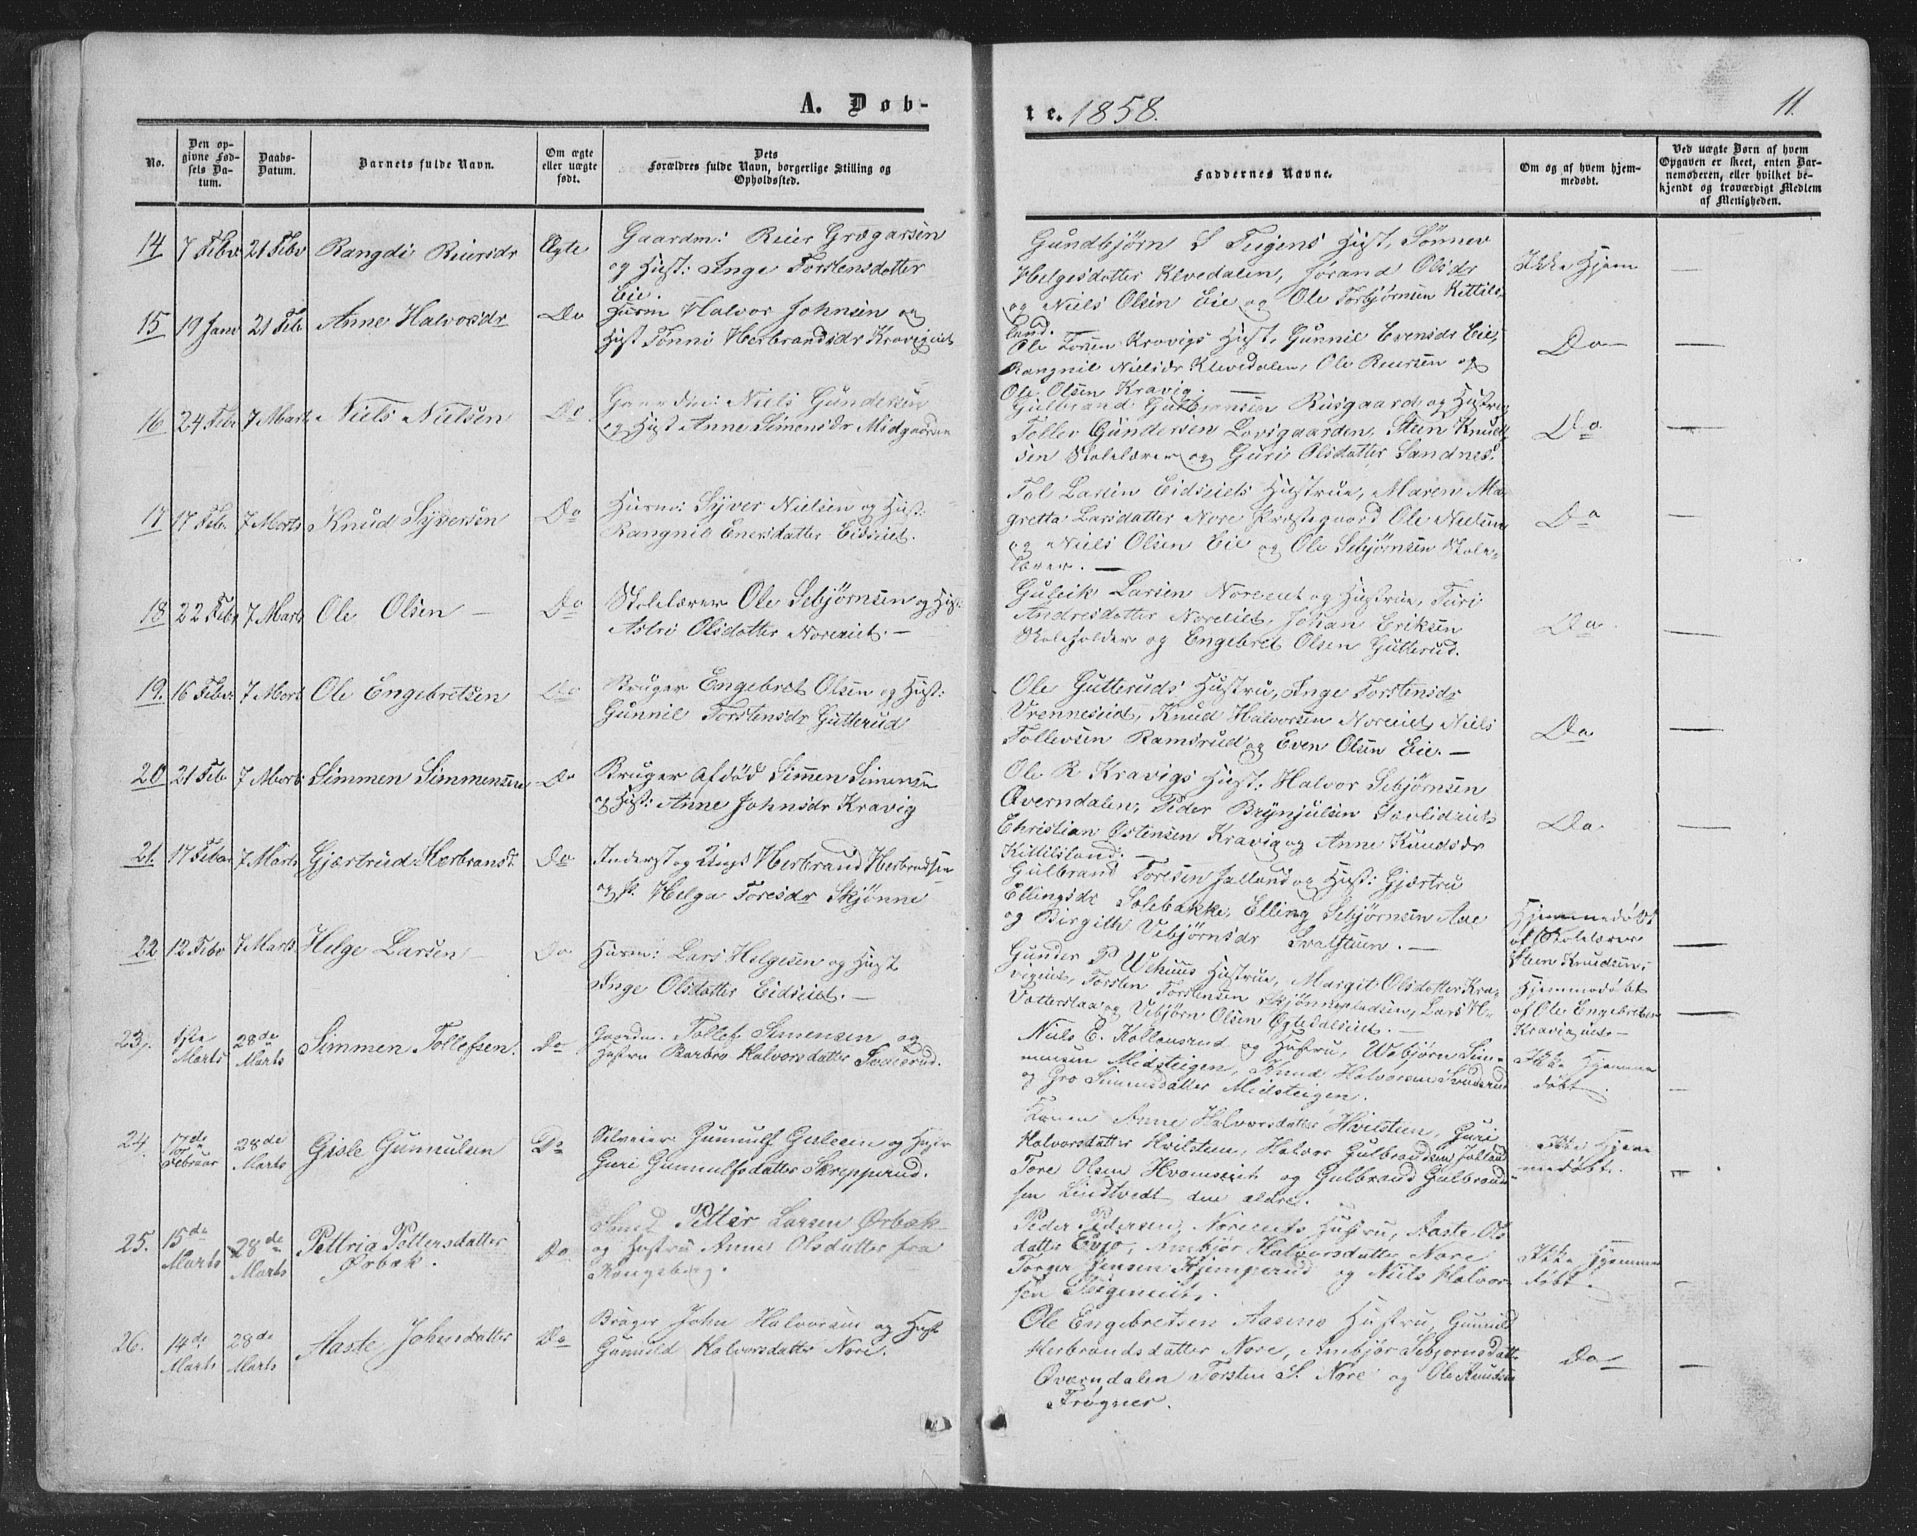 A. Døb-
te. 1858.
11.
No.
Den op-
givne Fød-
sels Da-
tum.
Daabs-
Datum.
Barnets fulde Navn.
Om ægte
eller uægte
født.
Dets
Forældres fulde Navn, borgerlige Stilling og
Opholdssted.
Faddernes Navne.
Om og af hvem hjem-
medøbt.
Ved uægte Børn af hvem
Opgaven er skeet, enten Bar-
nemoderen, eller hvilket be-
kjendt og troværdigt Medlem
af Menigheden.
14 7 Febr 21 Febr Rangdi Reiersdr Ægte
Gaardm: Reier Grægarsen
og Hust: Inge Torstensdatter
Eie.
Gundbjørn S Teigens Hust, Sønnev
Helgesdatter Klevedalen, Jørand Olsdr
og Niels Olsen Eie og Ole Torbjørnsen Kittils-
land.
Ikke Hjem
15 19 Janv 21 Feb Anne Halvorsdr Do
Husm Halvor Johnsen og
Hust Tønne Herbrandsdr Kravigeiet
Ole Toresen Kravigs Hust, Gunnil Evensdr Eie,
Rangnil Nielsdr Klevedalen, Ole Reiersen og
Ole Olsen Kravig.
Do
16 24 Febr 7 Marts Niels Nielsen Do
Gaardm: Niels Gundersen
og Hust Anne Simonsdr Midgaarden
Gulbrand Gulbransen Riisgaard og Hustru
Tollev Gundersen Lovsgaarden, Steen Knud-
sen Skolelærer og Guri Olsdatter Sandnes.
Do
17 17 Feb. 7 Marts Knud Syversen Do
Husm: Syver Nielsen og Hust:
Rangnil Enersdatter Eidseiet.
Tol Larsen Eidseiets Hustrue, Maren Ma-
gretta Larsdatter Nore Præstegaard Ole Nielsen
og Niels Olsen Eie og Ole Sebjørnsen Skole-
lærer.
Do
18 22 Febr 7 Marts Ole Olsen Do
Skolelærer Ole Sebjørnsen og Hust:
Astri Olsdatter Noreeiet.
Guleik Larsen Noreeiet og Hustrue, Turi
Andresdatter Noreeiet, Johan Eriksen
Skoleholder og Engebret Olsen Gutterud.
Do.
19. 16 Febr 7 Marts Ole Engebretsen Do
Bruger Engebret Olsen og Hust:
Gunnil Torstensdr Gutterud
Ole Gutteruds Hustru, Inge Torstensdr
Vrenneseid, Knud Halvorsen Noreeiet, Niels
Tollevsen Ramsrud og Even Olsen Eie.
Do
20 21 Feb 7 Marts Simmen Simmensen Do
Bruger Afdød Simen Simensen
og Hust: Anne Johnsdr Kravig
Ole R Kravigs Hust: Halvor Sebjørnsen
Øverndalen, Peder Brynjulsen
Christian Østensen Kravig og Anne Knudsdr
Kittilsland.
Do.
21. 17 Febr 7 Marts Gjærtrud Herbransd. Do
Herbrand Herbrandsen
og H. Helga Toresdr Skjønne
Gulbrand Toresen Jalland og Hust: Gjærtru
Ellingsdr Solebakke, Elling Sebjørnsen Aae
og Birgith Vebjørnsdr
Hjemmedøbt
af Skolelærer
Steen Knudsen
22 12 Febr 7 Marts Helge Larsen Do
Husm: Lars Helgesen og Hust
Inge Olsdatter Eidseiet.
Gunder P Uhuus Hustrue, Margit Olsdatter Kra-
vigeiet, Torsten Torstensen
og Vebjørn Olsen
Hjemmedøbt
af Ole Engebretsen
Kravigeiet
23. 1ste
Marts
28de
Marts
Simmen Tollefsen. Do
Gaardm. Tollef Simensen og
Hustru Barbro Halvorsdatter Svalerud.
Niels E. Kollensrud og Hustru, Webjørn Sim-
mensen Medsteigen, Knud Halvorsen
og Gro Simensdatter Midsteigen.
Ikke Hjemme
døbt.
24. 17de
Februar
28de
Marts
Gisle Gunnulsen Do
Selveier Gunnulf Gislesen og Hust
Guri Gunnulfsdatter Skrepperud.
Konen Anne Halvorsdatter Hvilsten, Guri
Halvorsdatter Hvilsteen, Halvor Gulbrandsen Jalland
Tore Olsen Hvamseiet og Gulbrand Gulbrand-
sen Lindtvedt den ældre.
Ikke Hjem
medøbt.
25. 15de
Marts
28de
Marts
Pettria Pettersdatter
Ørbæk.
Do
Smed Petter Larsen Ørbæk
og Hustru Anne Olsdatter fra
Kongsberg.
Peder Pedersen, Noreeiets Hustru, Aaste Ols-
datter Evjo, Ambjør Halvorsdatter Nore
Torger Jensen Kjemperud og Niels Halvor-
sen
Ikke Hjemme
døbt.
26. 14de
Marts
28de
Marts
Aaste Johnsdatter Do
Bruger John Halvorsen og Hust
Gunild Halvorsdatter Nore.
Ole Engebretsen Aasens Hustru, Gunild
Herbrandsdatter Nore, Ambjør Sebjørnsdatter
Øverndalen Torsten S. Nore og Ole Knudsen
Frøgner.
Do